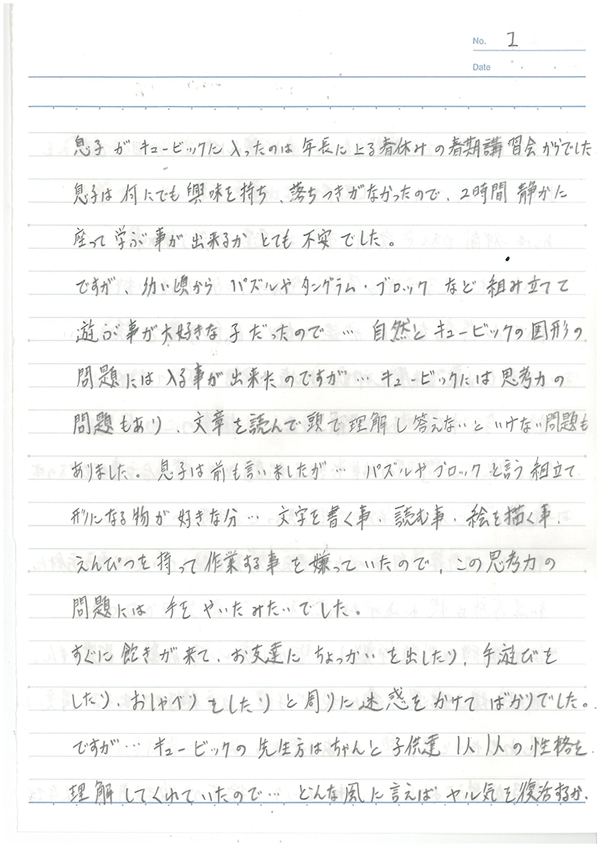 No. 1
Date
息子がキュービックに入ったのは年長に上る春休みの春期講習会からでした
息子は何にでも興味を持ち、落ちつきがなかったので、2時間静かに
座って学ぶ事が出来るかとても不安でした。
ですが、幼い頃からパズルやタングラム・ブロックなど組み立てて
遊ぶ事が大好きな子だったので…自然とキュービックの図形の
問題には入る事が出来たのですが…キュービックには思考力の
問題もあり、文章を読んで頭で理解し答えないといけない問題も
ありました。息子は前も言いましたが…パズルやブロックと言う組立て
形になる物が好きな分…文字を書く事、読む事、絵を描く事、
えんぴつを持って作業する事を嫌っていたので、この思考力の
問題には手をやいたみたいでした。
すぐに飽きが来て、お友達にちょっかいを出したり、手遊びを
したり、おしゃべりをしたりと周りに迷惑をかけてばかりでした。
ですが…キュービックの先生方はちゃんと子供達1人1人の性格を
理解してくれていたので…どんな風に言えばヤル気を復活するか、